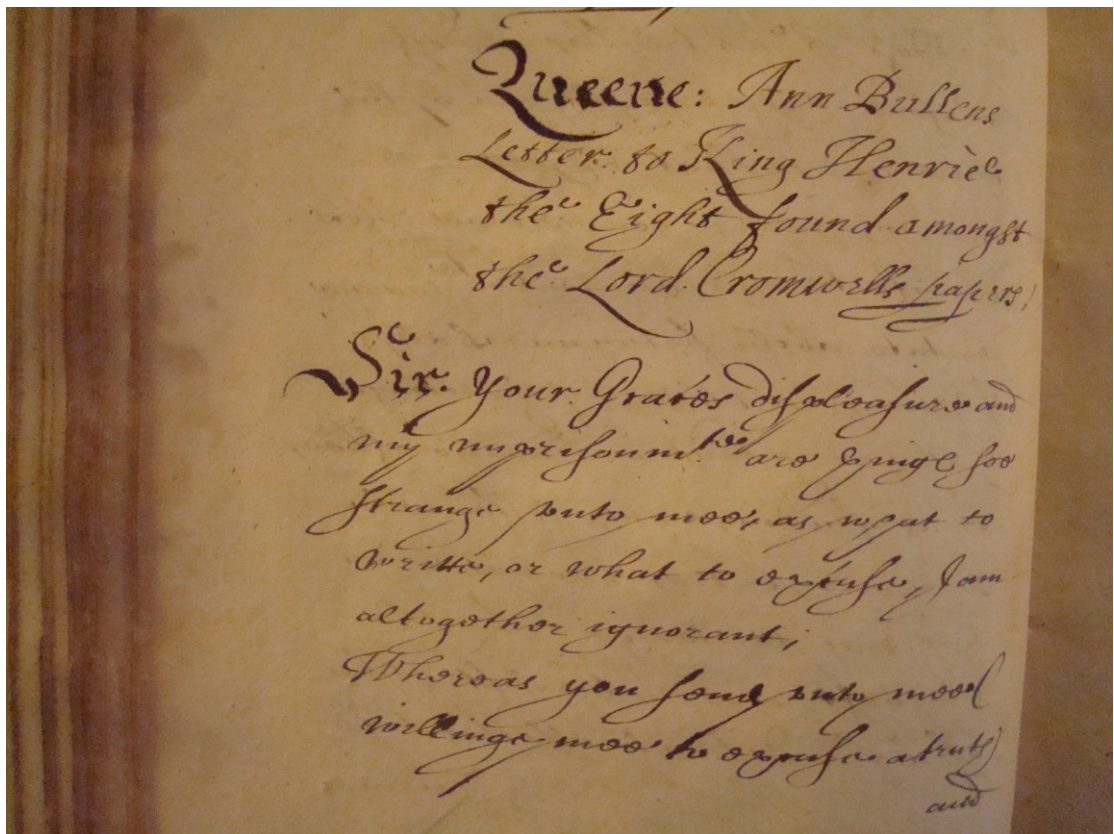 Queene: Ann Bullens
Letter to King Henrie
the Eight found amongst
the Lord Cromwells papers
Sir. Your Graces displeasure and
my imprisonmte are thinges soe
strange vnto mee, as what to
write, or what to excuse, I am
altogether ignorant;
Whereas you send vnto mee
willinge mee to excuse a truth
and